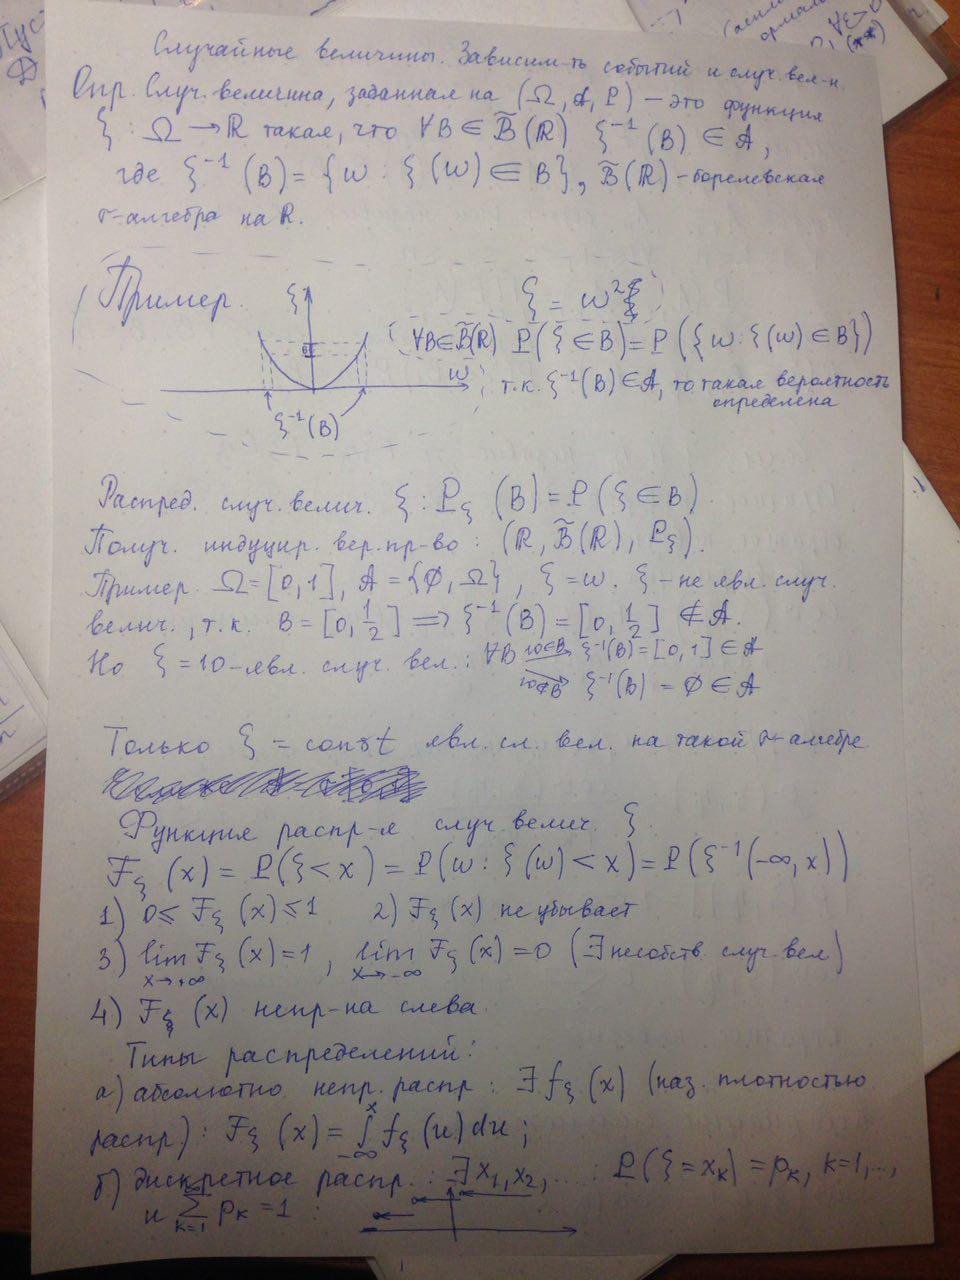 Случайные величины. Зависим-ть событий и случ. вел-н.
Опр. Случ. величина, заданная на (Ω, A, P) – это функция
ξ : Ω → R такая, что ∀B ∈ B̃(R) ξ⁻¹(B) ∈ A,
где ξ⁻¹(B) = {ω : ξ(ω) ∈ B}, B̃(R) - борелевская
σ-алгебра на R.
Пример.
ξ
ξ = ω²
∀B ∈ B̃(R) P(ξ ∈ B) = P({ω : ξ(ω) ∈ B})
ω
т.к. ξ⁻¹(B) ∈ A, то такая вероятность
определена
ξ⁻¹(B)
Распред. случ. велич. ξ : P_ξ (B) = P(ξ ∈ B).
Получ. индуцир. вер. пр-во : (R, B̃(R), P_ξ).
Пример. Ω = [0, 1], A = {∅, Ω}, ξ = ω. ξ - не явл. случ.
велич., т.к. B = [0, 1/2] ⟹ ξ⁻¹(B) = [0, 1/2] ∉ A.
Но ξ = 10 - явл. случ. вел. : ∀B 10∈B → ξ⁻¹(B) = [0, 1] ∈ A
10∉B → ξ⁻¹(B) = ∅ ∈ A
Только ξ = const явл. сл. вел. на такой σ-алгебре
Функция распр-я случ. велич. ξ.
F_ξ (x) = P(ξ < x) = P(ω : ξ(ω) < x) = P(ξ⁻¹(-∞, x))
1) 0 ≤ F_ξ (x) ≤ 1 2) F_ξ (x) не убывает
3) lim x→+∞ F_ξ (x) = 1, lim x→-∞ F_ξ (x) = 0 (∃ несобств. случ. вел)
4) F_ξ (x) непр-на слева
Типы распределений:
а) абсолютно непр. распр : ∃ f_ξ (x) (наз. плотностью
распр) : F_ξ (x) = ∫_{-∞}^{x} f_ξ (u) du ;
б) дискретное распр. : ∃ x₁, x₂, ... : P(ξ = x_k) = p_k, k=1,...,
и ∑_{k=1}^{∞} p_k = 1 :